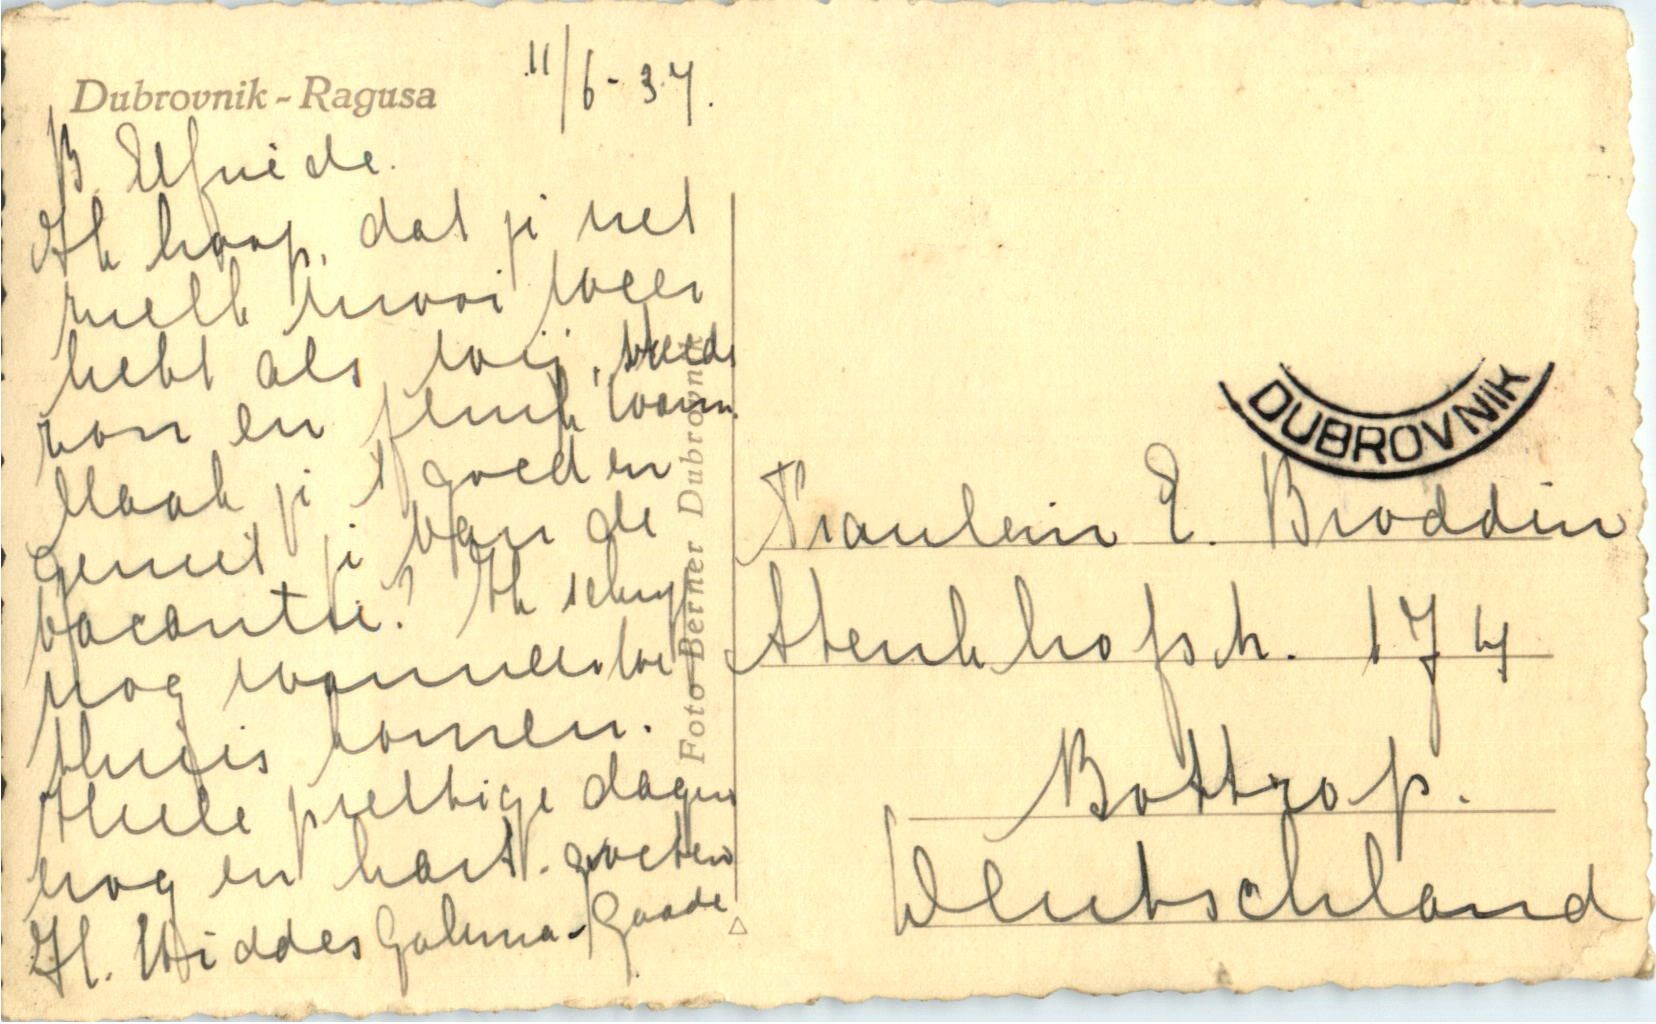 Dubrovnik - Ragusa
11/6-37.
B. Elfriede.
Ik hoop, dat ji net
zulk mooi weer
hebt als wij, steeds
zon en flink warm.
Maak ji 't goed en
geniet ji van de
vacantie? Ik schrijf
nog wanneer we
thuis komen.
Hele prettige dagen
nog en hart. groeten
H. Middes Galema - Gaade
Foto Berner Dubrovnik
DUBROVNIK
Fraulein E. Broddin
Stenkhofstr. 174
Bottrop.
Deutschland